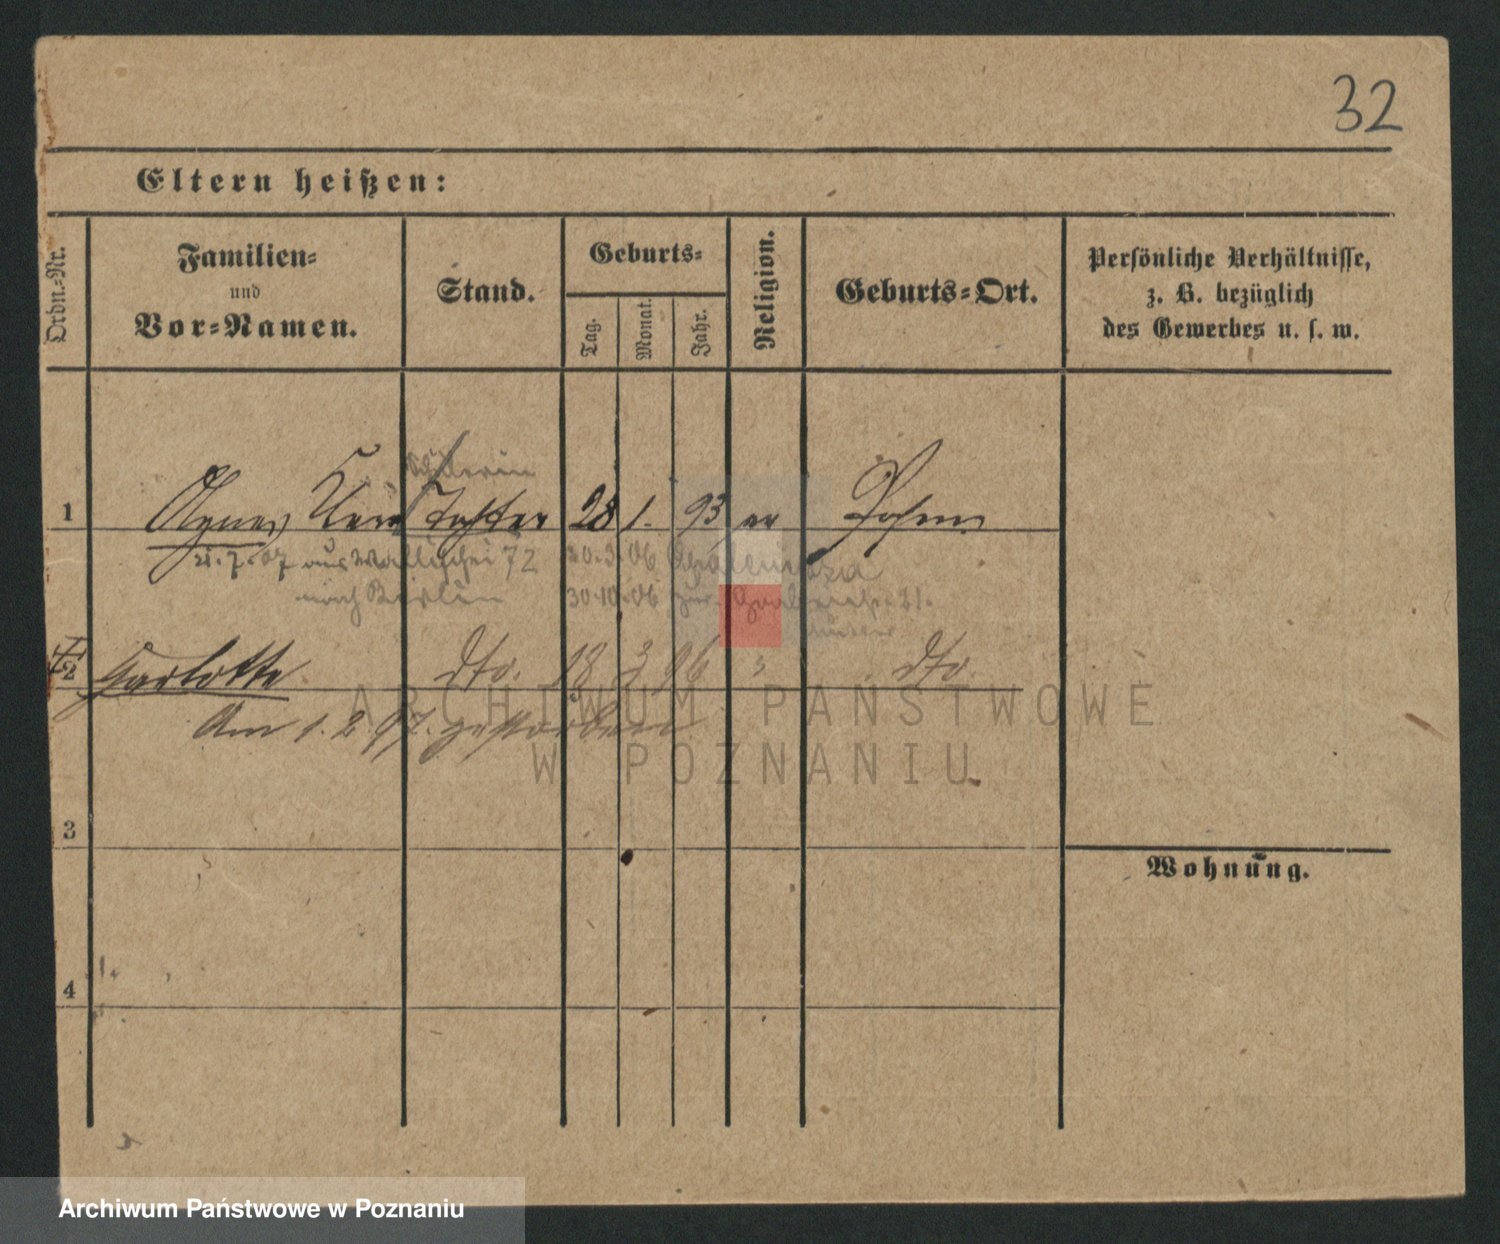 32
Eltern heißen:
Ordn.-Nr.
Familien-
und
Vor-Namen.
Stand.
Geburts-
Tag.
Monat.
Jahr.
Religion.
Geburts-Ort.
Persönliche Verhältnisse,
z. B. bezüglich
des Gewerbes u. s. w.
Schülerin
1 Agnes Tochter 28 1. 93 ev Posen
21.7.07 aus Wallischei 72 20.3.06
nach Berlin 30.10.06 zur. 21.
2 Charlotte dto. 18 3 96 " dto.
Am 1.2.97. gestorben
ARCHIWUM PAŃSTWOWE
W POZNANIU
3
Wohnung.
4
Archiwum Państwowe w Poznaniu